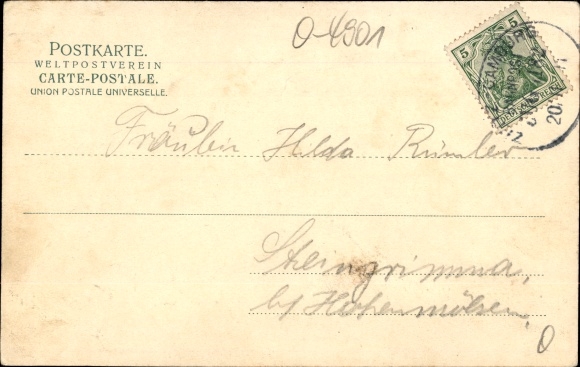 O-4901
POSTKARTE.
WELTPOSTVEREIN
CARTE-POSTALE.
UNION POSTALE UNIVERSELLE.
5 5
CAMBURG
20.
Fräulein Hilda Rümler
Steingrimma,
b/ Hohenmölsen,
0